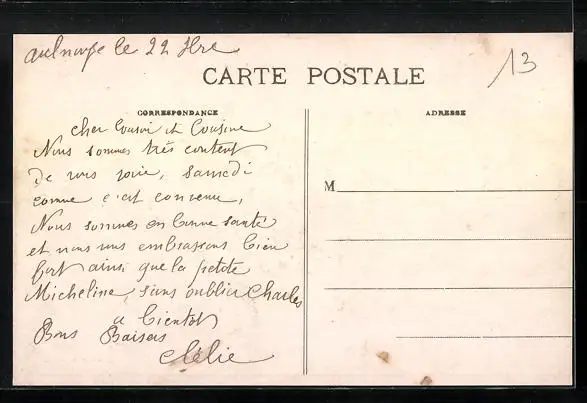 Aulnoye le 22 7bre
13
CARTE POSTALE
CORRESPONDANCE
ADRESSE
M
cher Cousin et Cousine
Nous sommes très content
de vous voir, samedi
comme c'est convenu,
Nous sommes en bonne santé
et nous vous embrassons bien
fort ainsi que la petite
Micheline, sans oublier Charles
a bientot
Bons Baisers
Clélie